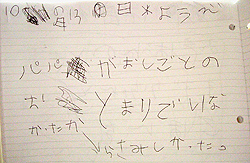 10月13日 日 木ようび
パパがおしごとの
とまりでいな
かったから
さみしかった。